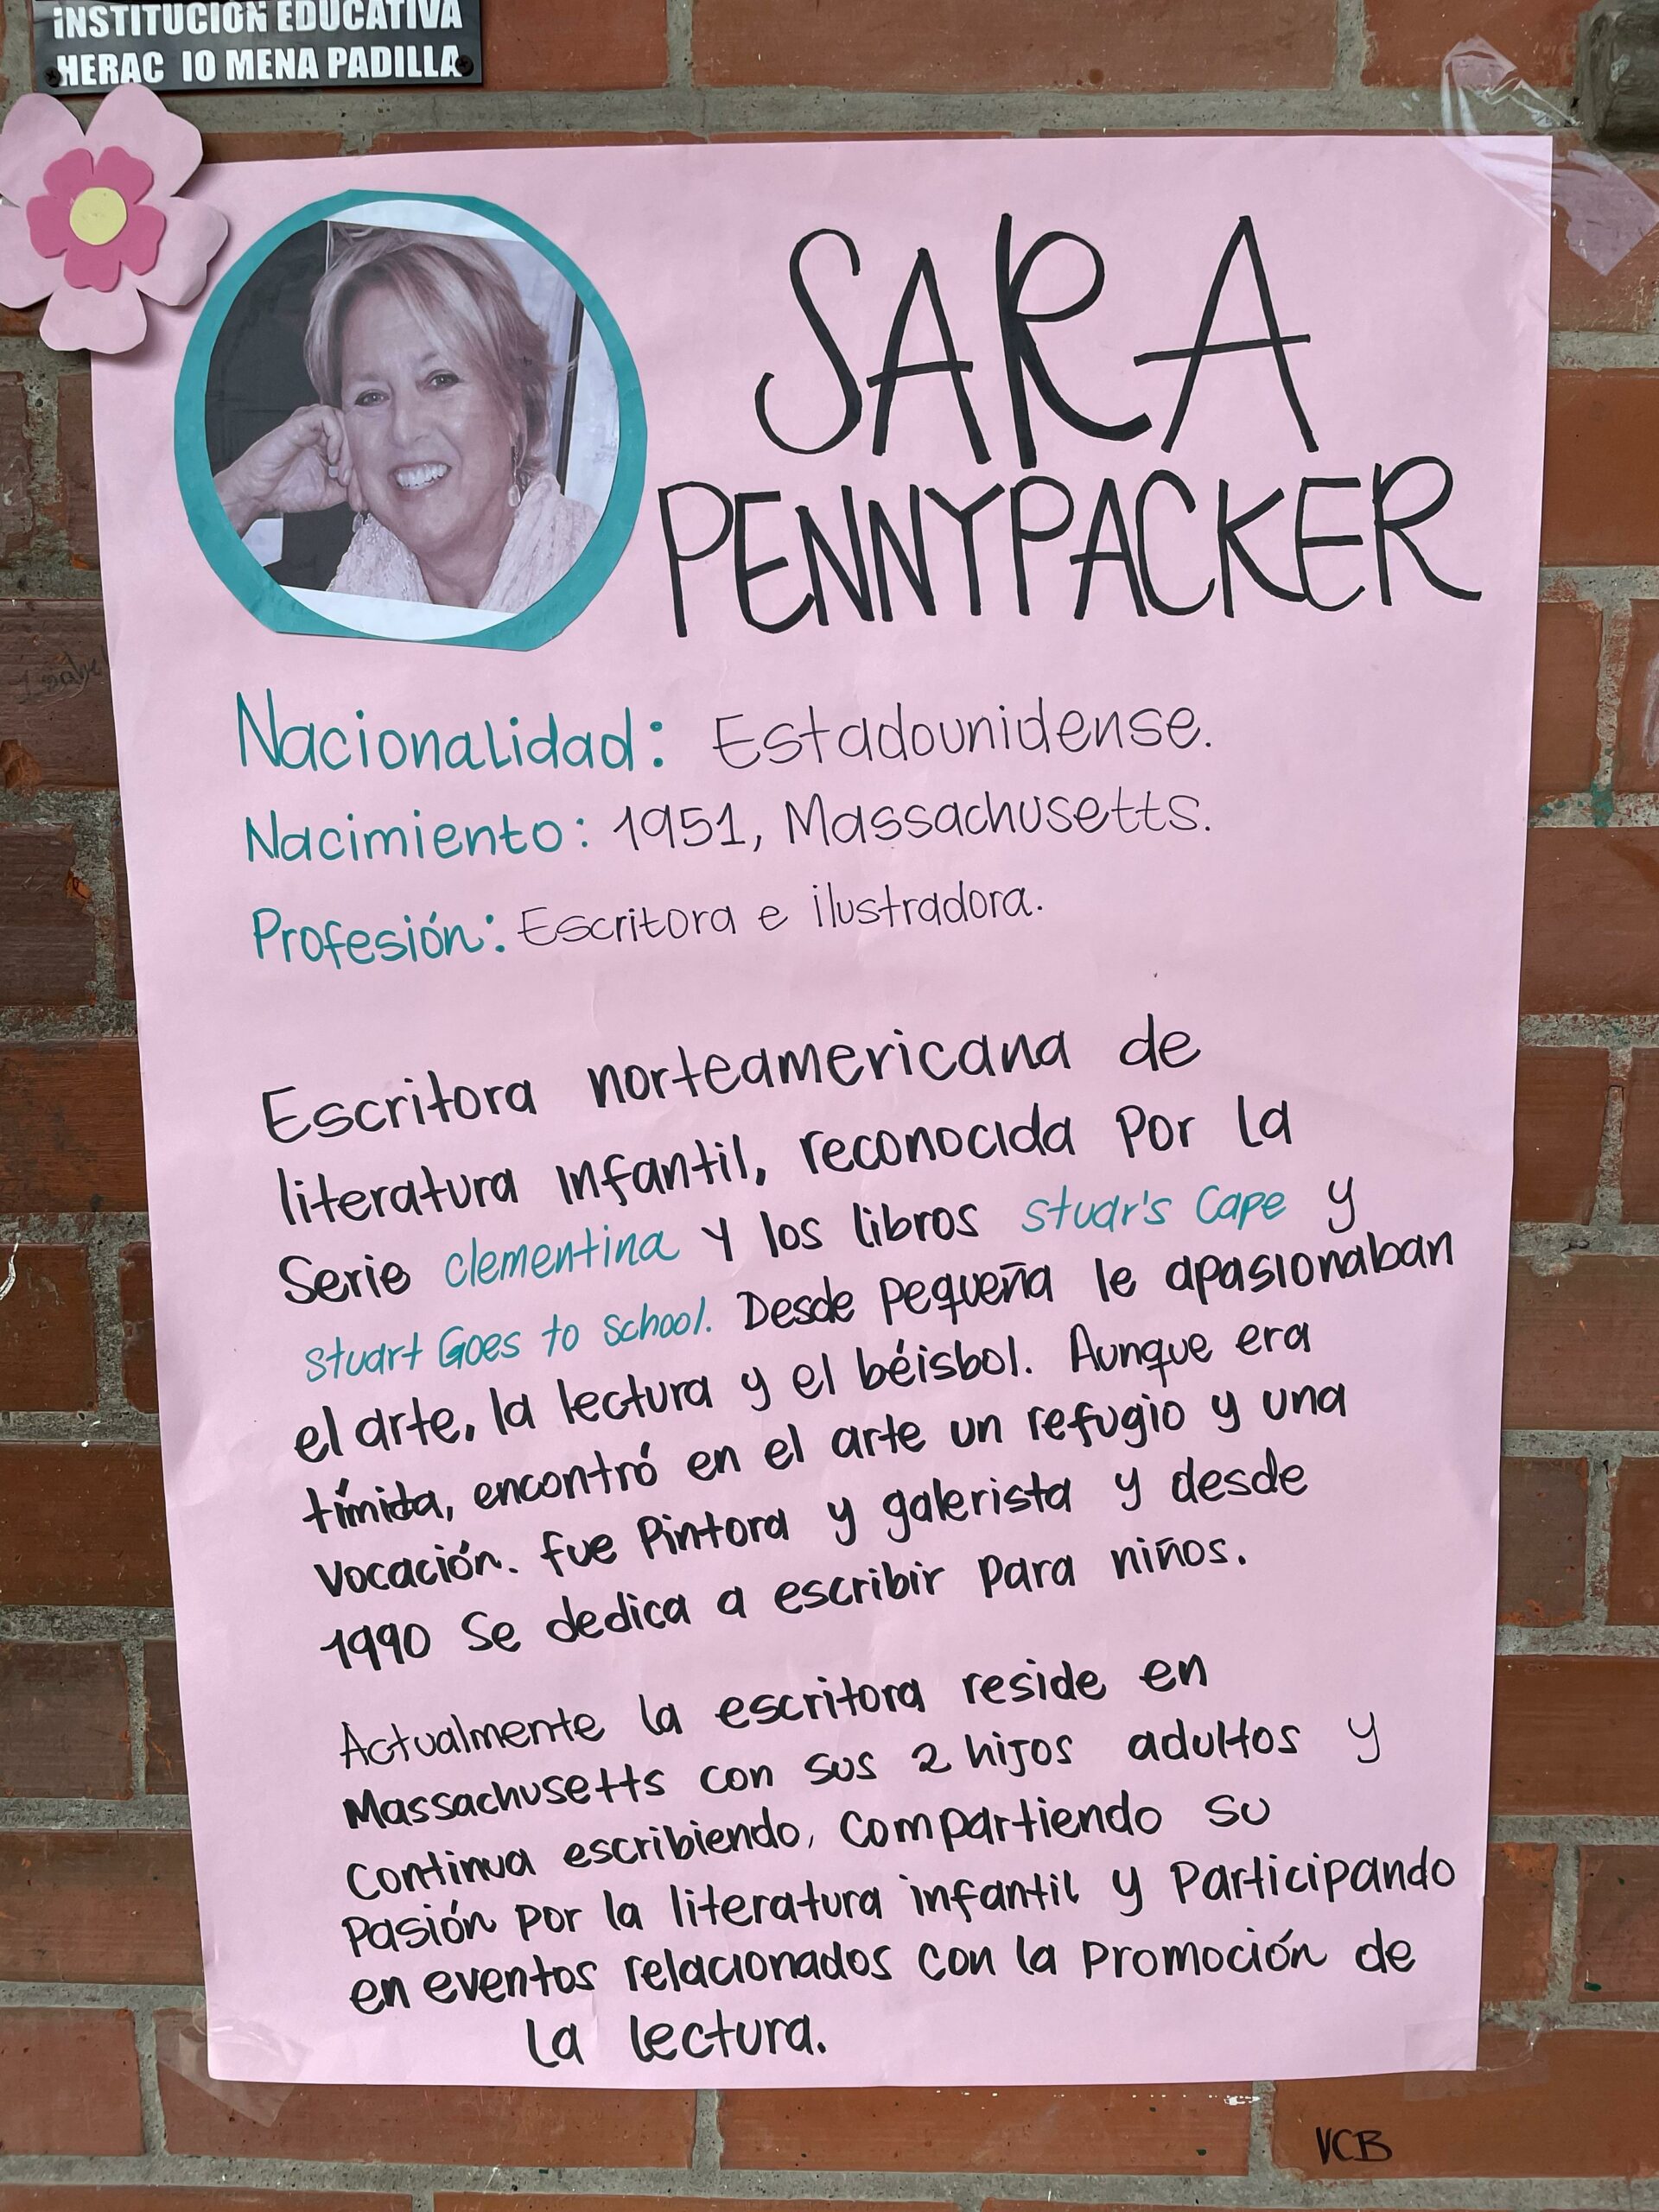 INSTITUCIÓN EDUCATIVA
HERAC IO MENA PADILLA
SARA
PENNYPACKER
Nacionalidad: Estadounidense.
Nacimiento: 1951, Massachusetts.
Profesión: Escritora e ilustradora.
Escritora norteamericana de
literatura infantil, reconocida por la
Serie clementina y los libros stuar's Cape y
stuart Goes to school. Desde pequeña le apasionaban
el arte, la lectura y el béisbol. Aunque era
tímida, encontró en el arte un refugio y una
vocación. fue Pintora y galerista y desde
1990 Se dedica a escribir para niños.
Actualmente la escritora reside en
Massachusetts con sus 2 hijos adultos y
Continua escribiendo, Compartiendo su
Pasión por la literatura infantil y Participando
en eventos relacionados con la promoción de
la lectura.
VCB